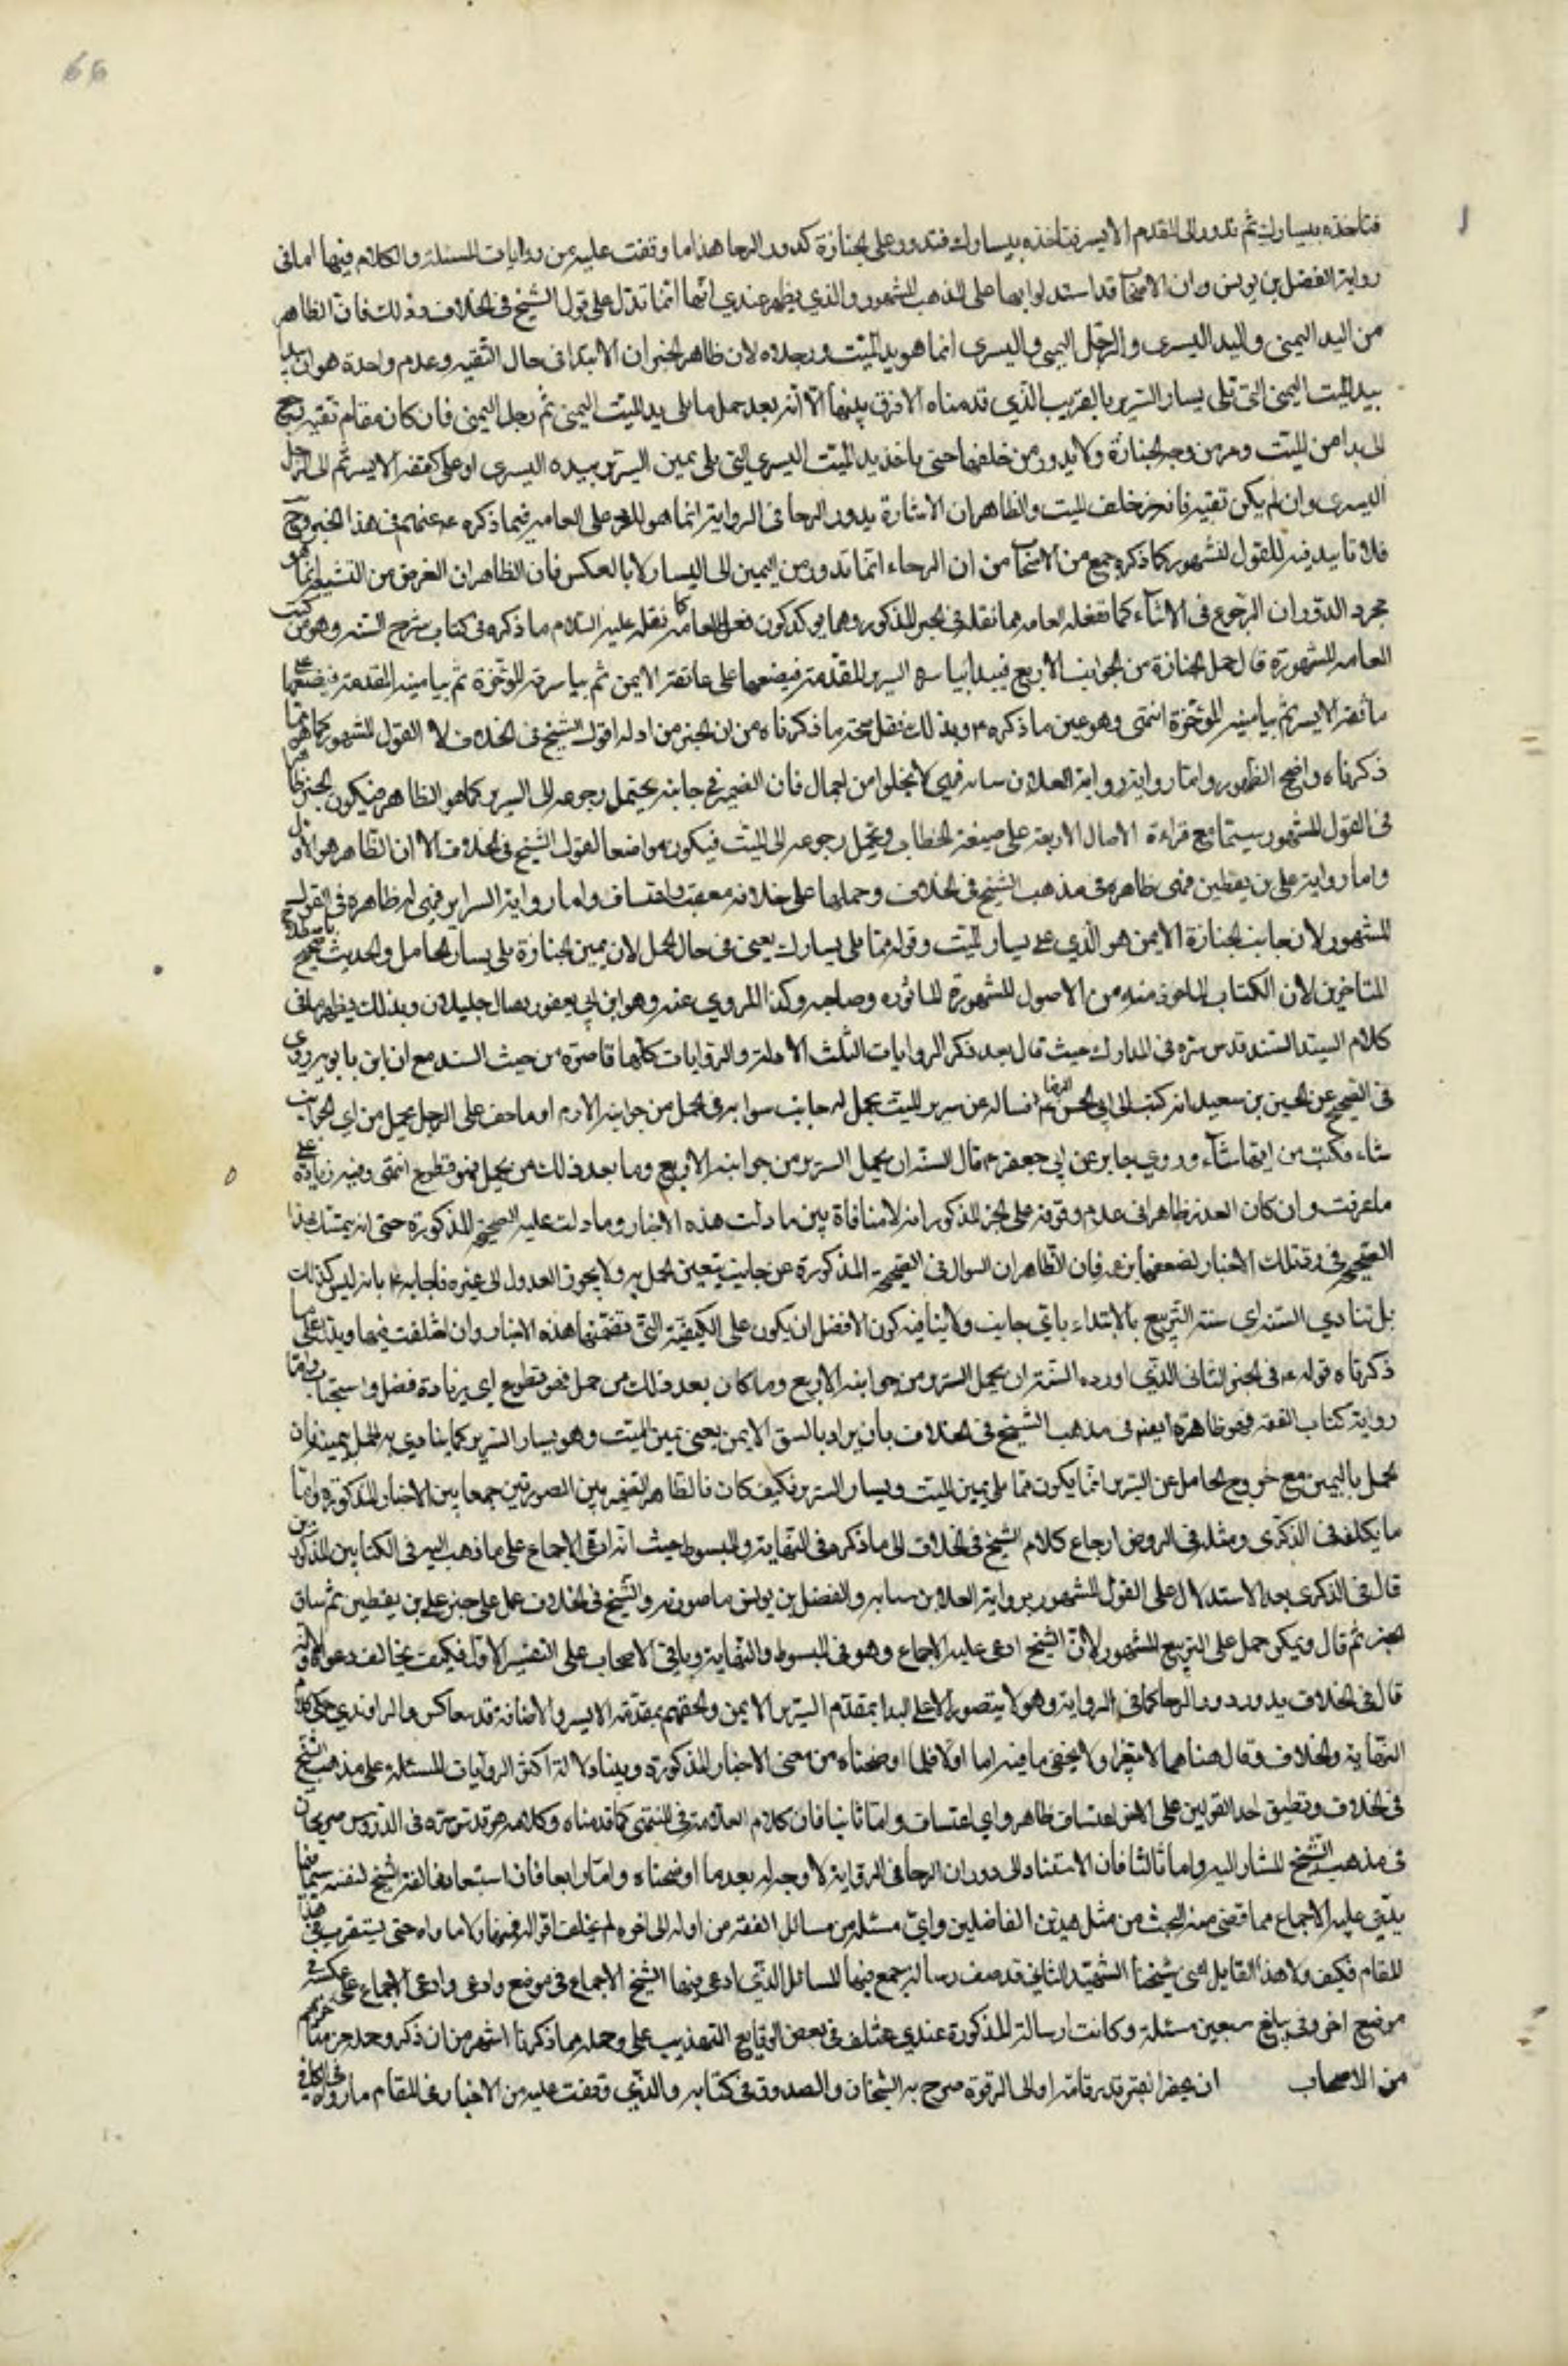 66
فتأخذه بيسارك ثم تدور الى المقدم الايسر فتأخذه بيسارك فتدور على الجنازة كدور الرحا هذا ما وقفت عليه من روايات المسئلة والكلام فيها اما في
رواية الفضل بن يونس وان الاصحاب قد استدلوا بها على المذهب المشهور والذي يظهر عندي انها انما تدل على قول الشيخ في الخلاف وذلك فان الظاهر
من اليد اليمنى واليد اليسرى والرجل اليمنى واليسرى انما هو يد الميت ورجلاه لان ظاهر الخبر ان الابتدا في حال التقيه وعدم واحدة هو ان يبدا
بيد الميت اليمنى التي تلى يسار السرير بالتقريب الذي قدمناه الا فرق بينهما الا انه بعد حمل ما يلى يد الميت اليمنى ثم رجل اليمنى فان كان مقام تقيه رجع
الى بدا من الميت ومر من وجه الجنازة ولا يدور من خلفها حتى ياخذ يد الميت اليسرى التي تلى يمين السرير بيده اليسرى او على كتفه الايسر ثم الى الرجل
اليسرى وان لم يكن تقيه فانه من خلف الميت والظاهر ان الاشارة بدور الرحا في الرواية انما هو للرد على العامه فيما ذكره ع عنهم في هذا الخبر وح
فلا تاييد فيه للقول المشهور كما ذكره جمع من الاصحاب من ان الرحاء انما تدور من اليمين الى اليسار لا بالعكس فان الظاهر ان الغرض من التشبيه انما هو
مجرد الدوران الرجوع في الاثناء كما تفعله العامه مما نقله في الخبر المذكور ومما يوكد كون فعل العامه كما نقله عليه السلام ما ذكره في كتاب شرح السنه وهو من كتب
العامه المشهورة قال حمل الجنازة من الجوانب الاربع فيبدأ بياسرة السرير المقدمة فيضعها على عاتقه الايمن ثم بياسرته المؤخرة ثم بيامينه المقدمة فيضعها على
عاتقه الايسر ثم بيامينه المؤخرة انتهى وهو عين ما ذكره ع وبذلك نقل صحة ما ذكرناه من ان الخبر من ادلة قول الشيخ في الخلاف لا القول المشهور كما هو بما
ذكرناه واضح الظهور واما رواية ورواية العلا بن سيابه فهي لا يخلوا من اجمال فان الضمير في جانبه يحتمل رجوعه الى السرير كما هو الظاهر فيكون الخبر ظاهرا
في القول المشهور سيما مع قراءة الافعال الاربعة على صيغة الخطاب ويحتمل رجوعه الى الميت فيكون موافقا لقول الشيخ في الخلاف الا ان الظاهر هو الاول
واما رواية على بن يقطين فهي ظاهرة في مذهب الشيخ في الخلاف وحملها على خلافه تعسف واعتساف واما رواية السراير فهي له ظاهرة في القول
المشهور لان جانب الجنازة الايمن هو الذي على يسار الميت وقوله مما يلى يسارك يعنى في حال الحمل لان يمين الجنازة يلى يسار الحامل والحديث صحيح باصطلاح
المتاخرين لان الكتاب الماخوذ منه من الاصول المشهورة الماثوره وصاحبه وكذا المروي عنه وهو ابن ابي يعفور بصال جليلان وبذلك يظهر ما في
كلام السيد السند قدس سره في المدارك حيث قال بعد ذكر الروايات الثلث الاولة والروايات كلها قاصرة من حيث السند مع ان ابن بابويه روى
في الصحيح عن الحسين بن سعيد انه كتب الى ابي الحسن الرضا ع نساله عن سرير الميت يحمل له جانب سواء به في الحمل من جوانبه الاربع او ما خف على الرجل يحمل من اي الجوانب
شاء فكتب من ايها شاء وروي جابر عن ابي جعفر ع قال السنة ان يحمل السرير من جوانبه الاربع وما بعد ذلك من حمل فهو تطوع انتهى وفيه زيادة على
ما عرفت وان كان العذر ظاهرا في عدم وقوفه على الخبر المذكور انه لا منافاة بين ما دلت هذه الاخبار وما دلت عليه الصحيحة المذكورة حتى انه يتمسك بهذا
الصحيح في رد تلك الاخبار لضعفها بزعمه فان الظاهر ان السوال في الصحيحة المذكورة عن جانب يتعين الحمل به ولا يجوز العدول الى غيره فاجابه ع بانه ليس كذلك
بل تنادي السنة اي سنة التربيع بالابتداء باي جانب ولا ينافيه كون الافضل ان يكون على الكيفية التي تضمنتها هذه الاخبار وان اختلفت فيها ويدل على ما
ذكرناه قوله ع في الخبر الثاني الذي اورده السنة ان يحمل السرير من جوانبه الاربع وما كان بعد ذلك من حمل فهو تطوع اي زيادة فضل واستحباب واما
رواية كتاب الفقه فهو ظاهرة ايضا في مذهب الشيخ في الخلاف بان يراد بالشق الايمن يعنى يمين الميت وهو يسار السرير كما ينادي به الحمل بيمينه فان
الحمل باليمين مع خروج الحامل عن السرير انما يكون مما يلى يمين الميت ويسار السرير فكيف كان فالظاهر التخيير بين الصورتين جمعا بين الاخبار المذكورة واما
ما يكلف في الذكرى ومثله في الروض ارجاع كلام الشيخ في الخلاف الى ما ذكره في النهاية والمبسوط حيث انه ادعى الاجماع على ما ذهب اليه في الكتابين المذكورين
قال في الذكرى بعد الاستدلال على القول المشهور برواية العلا بن سيابه والفضل بن يونس ما صورته والشيخ في الخلاف عمل على خبر علي بن يقطين ثم ساق
الخبر ثم قال ويمكن حمله على التربيع المشهور لان الشيخ ادعى عليه الاجماع وهو في المبسوط والنهاية وباقي الاصحاب على التفسير الاول فكيف يخالف دعواه ولانه
قال في الخلاف يدور دور الرحا كما في الرواية وهو لا يتصور الا على البدا بمقدم السرير الايمن والختم بمقدمه الايسر والاضافة قد يتعاكس والراوندي حكى كلام
النهاية والخلاف وقال معناهما لا يتغير ولا يخفى ما فيه اما اولا فلما اوضحناه من معنى الاخبار المذكورة وبيناه دلالة اكثر الروايات المسئلة على مذهب الشيخ
في الخلاف وتطبيق احد القولين على الاخر اعتساف ظاهر واي اعتساف واما ثانيا فان كلام العلامة في المنتهى كما قدمناه وكلامه هو قدس سره في الدروس صريحان
في مذهب الشيخ المشار اليه واما ثالثا فان الاستناد الى دوران الرحا في الرواية لا وجه له بعد ما اوضحناه واما رابعا فان استبعاد مخالفة الشيخ لنفسه سيما فيما
يدعى عليه الاجماع مما قضى منه العجب من مثل هذين الفاضلين واي مسئلة من مسائل الفقه من اوله الى اخره لم يختلف اقواله فيها ولا ما واه حتى يستغرب في هذا
المقام فكيف ولا هذا القايل اعنى شيخنا الشهيد الثاني قد صنف رسالة جمع فيها المسائل الذي ادعى فيها الشيخ الاجماع في موضع وادعى وادعى الاجماع على عكسه في
موضع اخر وفي يبلغ سبعين مسئلة وكانت ارسالة المذكورة عندي فتلف في بعض الوقايع التهذيب على وحله مما ذكرنا اشهر من ان ذكر
من الاصحاب ان يحفر القبر قدر قامة او الى الترقوة صرح به الشيخان والصدوق في كتابه والذي وقفت عليه من الاخبار في المقام ما رواه في الكافي